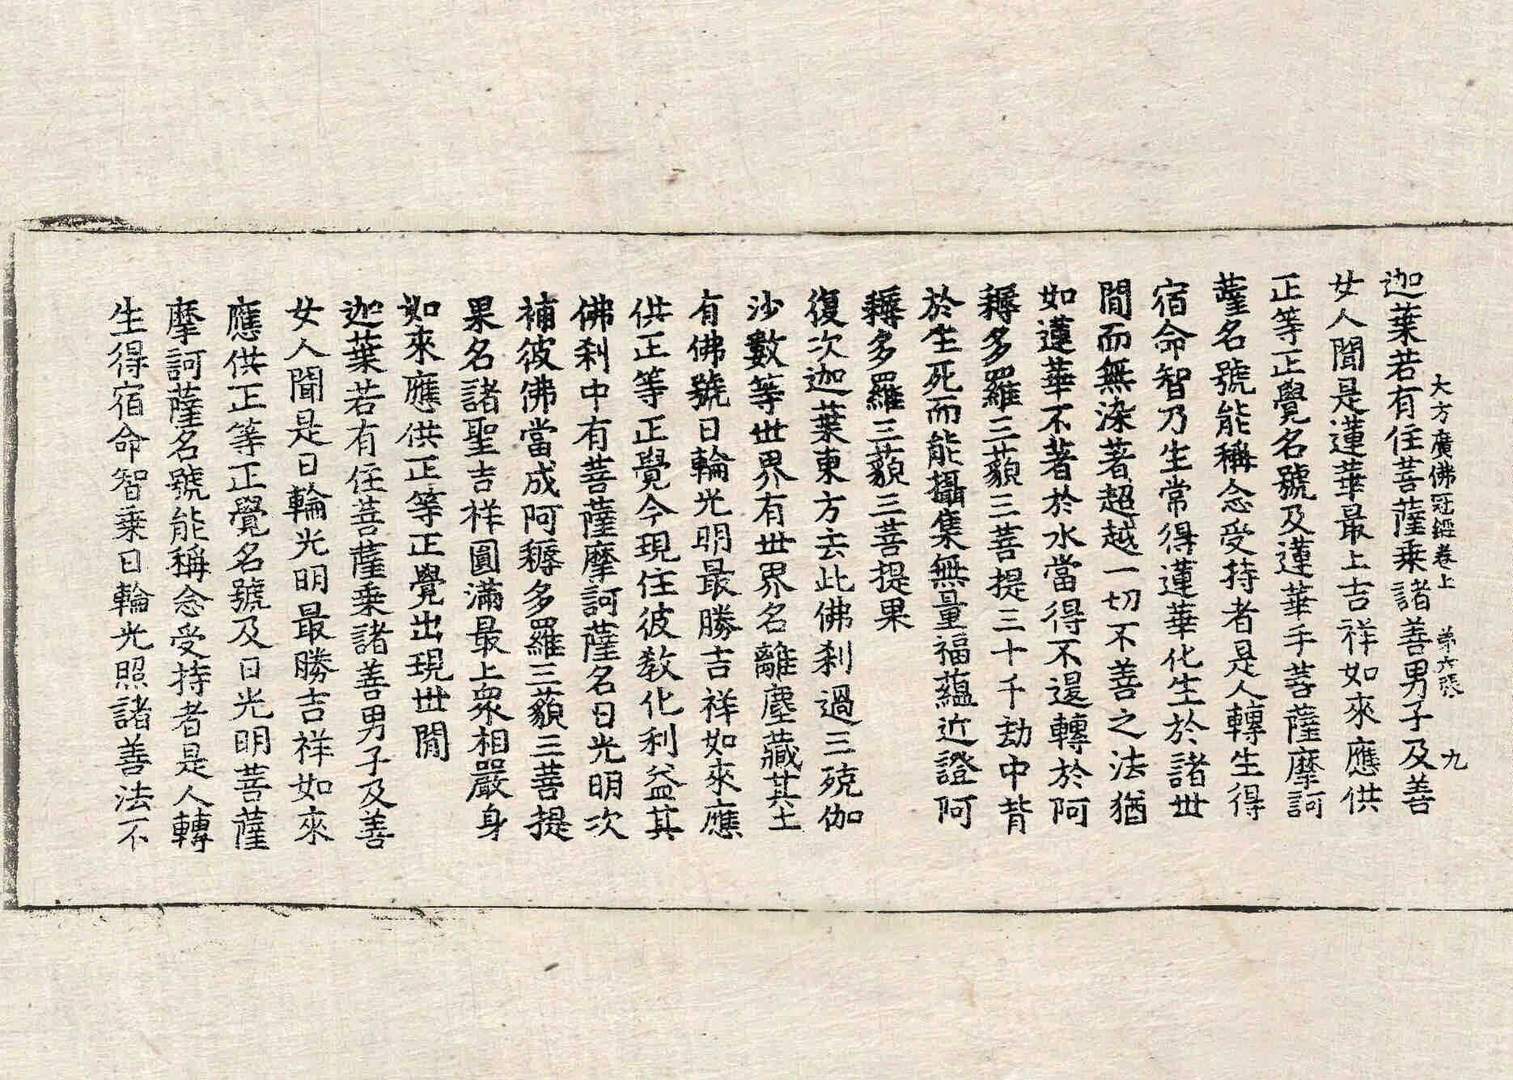 大方廣佛冠經卷上　第六張　九
迦葉若有住菩薩乘諸善男子及善
女人聞是蓮華最上吉祥如來應供
正等正覺名號及蓮華手菩薩摩訶
薩名號能稱念受持者是人轉生得
宿命智乃生常得蓮華化生於諸世
間而無染著超越一切不善之法猶
如蓮華不著於水當得不退轉於阿
耨多羅三藐三菩提三十千劫中背
於生死而能攝集無量福蘊近證阿
耨多羅三藐三菩提果
復次迦葉東方去此佛刹過三殑伽
沙數等世界有世界名離塵藏其土
有佛號日輪光明最勝吉祥如來應
供正等正覺今現住彼教化利益其
佛刹中有菩薩摩訶薩名日光明次
補彼佛當成阿耨多羅三藐三菩提
果名諸聖吉祥圓滿最上衆相嚴身
如來應供正等正覺出現世間
迦葉若有住菩薩乘諸善男子及善
女人聞是日輪光明最勝吉祥如來
應供正等正覺名號及日光明菩薩
摩訶薩名號能稱念受持者是人轉
生得宿命智乘日輪光照諸善法不